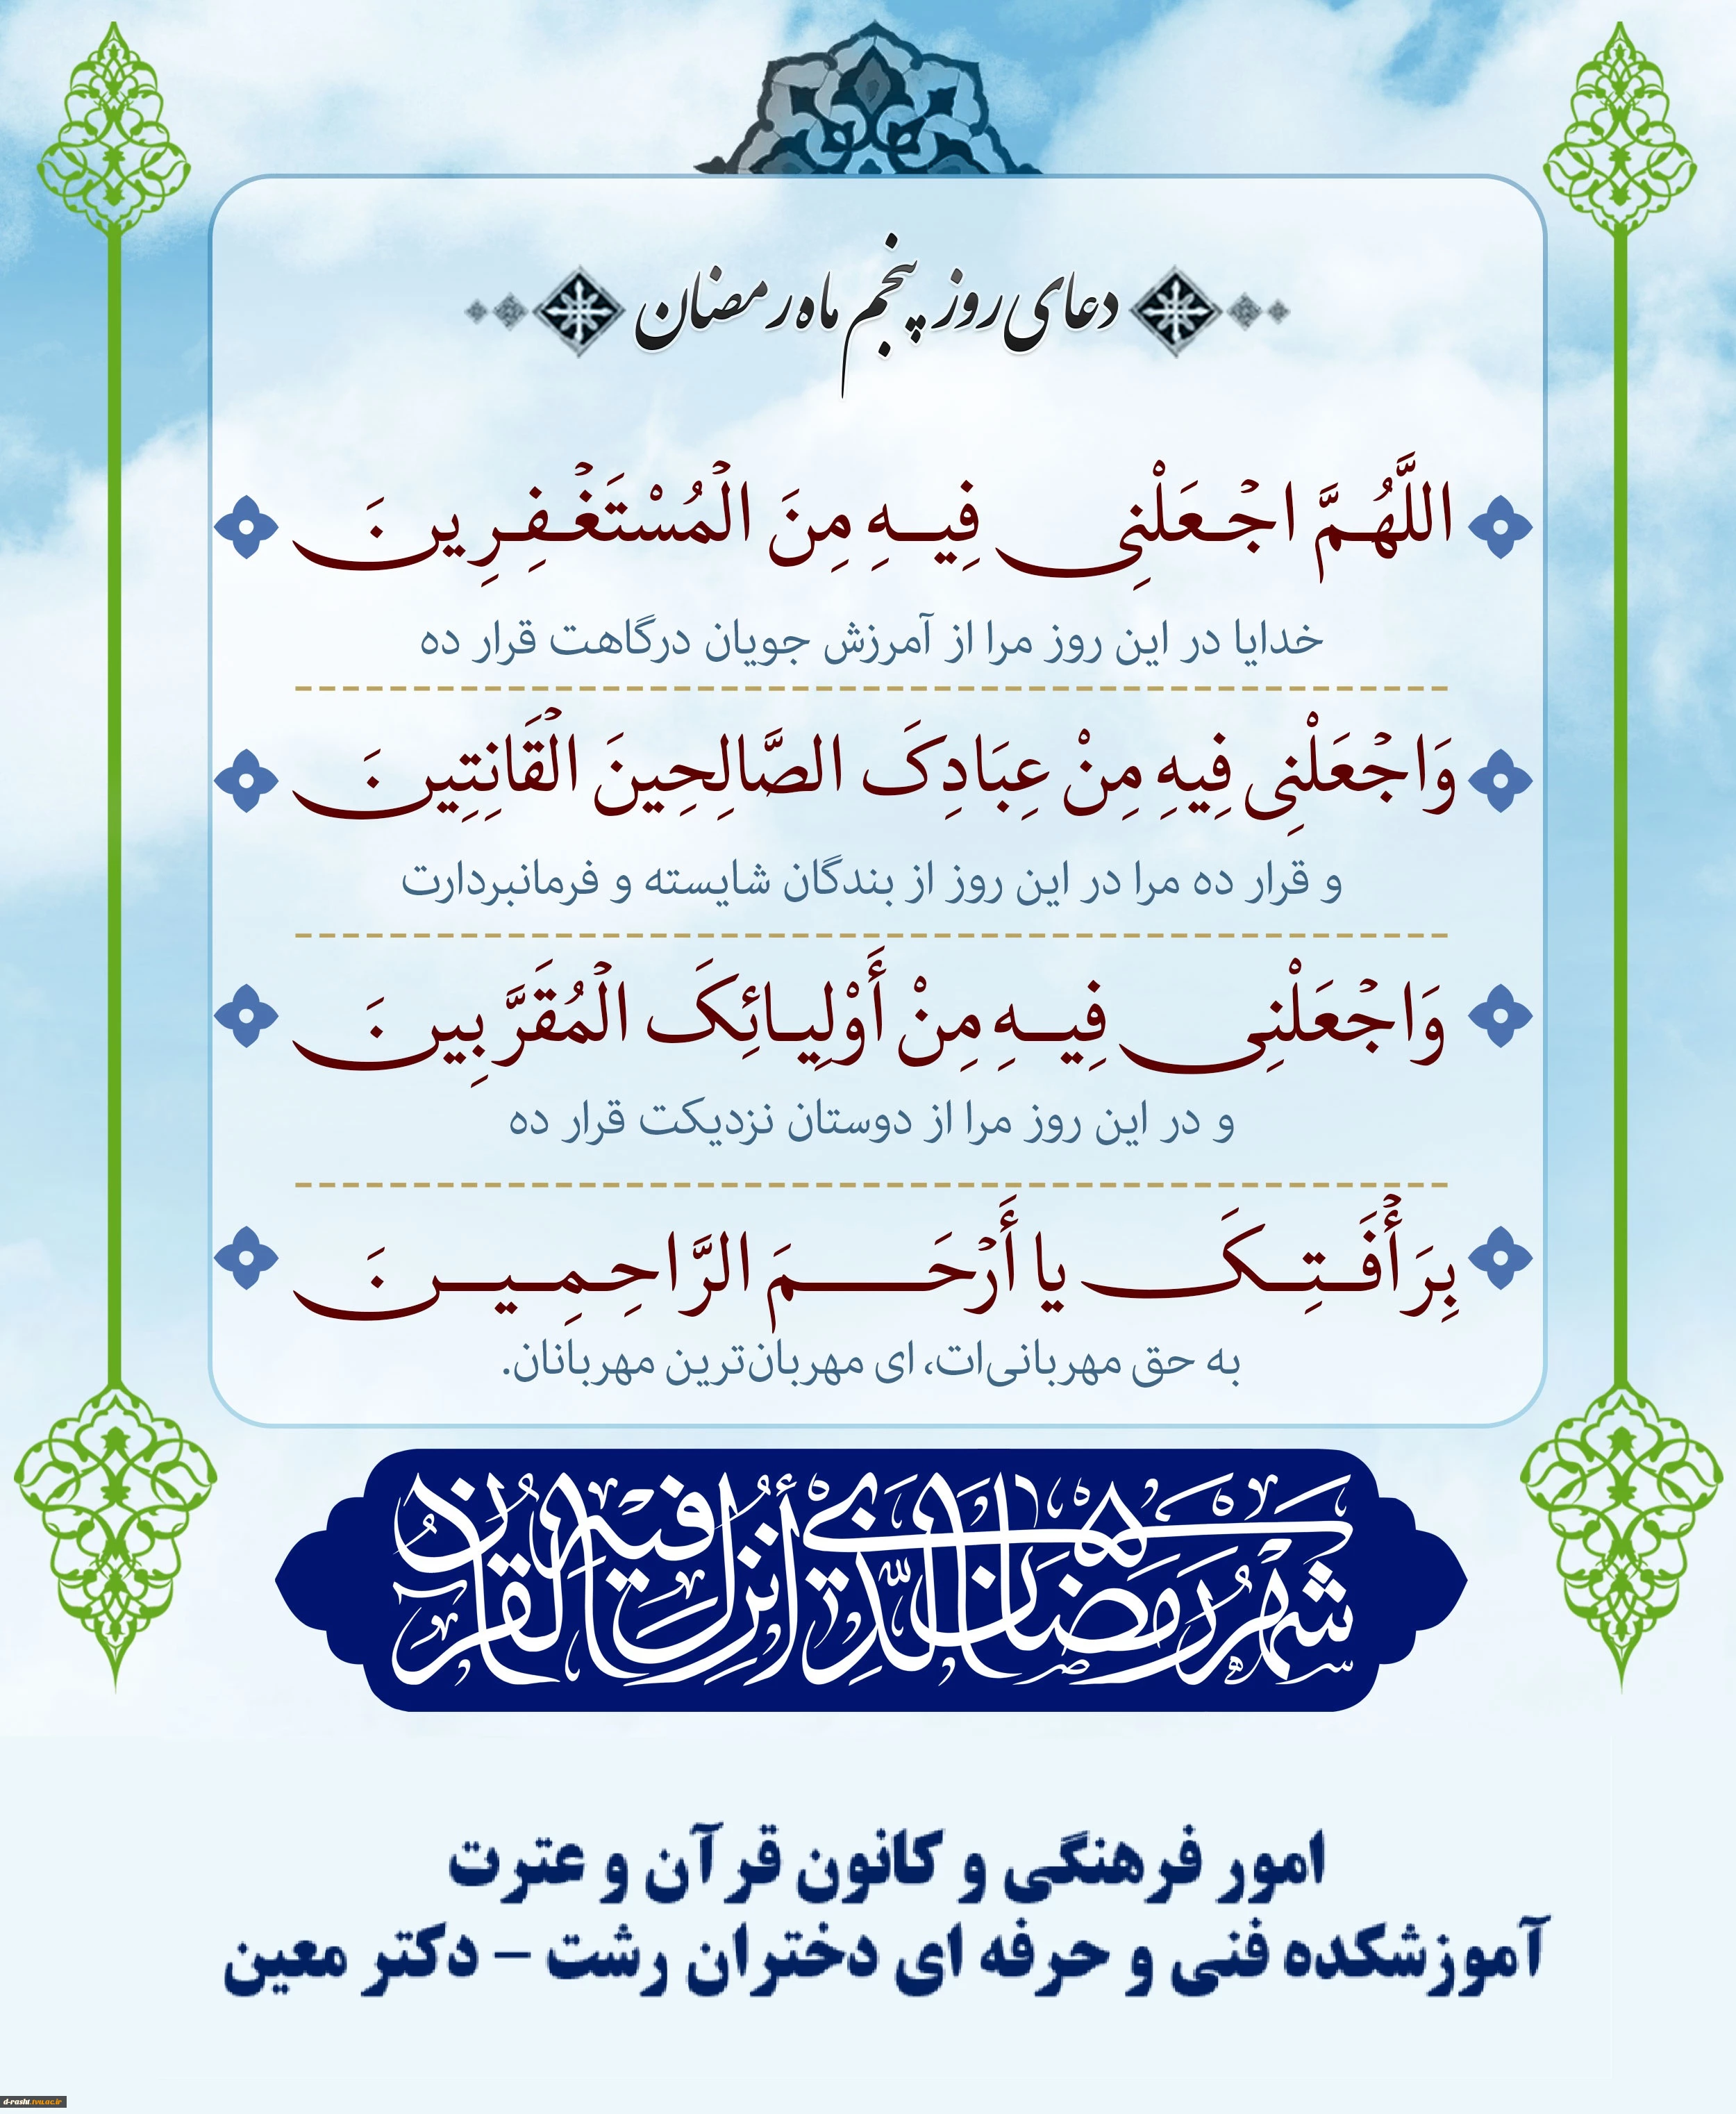 دعای روز پنجم ماه رمضان
اللَّهُمَّ اجْعَلْنِی فِیهِ مِنَ الْمُسْتَغْفِرِینَ
خدایا در این روز مرا از آمرزش جویان درگاهت قرار ده
وَاجْعَلْنِی فِیهِ مِنْ عِبَادِکَ الصَّالِحِینَ الْقَانِتِینَ
و قرار ده مرا در این روز از بندگان شایسته و فرمانبردارت
وَاجْعَلْنِی فِیهِ مِنْ أَوْلِیائِکَ الْمُقَرَّبِینَ
و در این روز مرا از دوستان نزدیکت قرار ده
بِرَأْفَتِکَ یا أَرْحَمَ الرَّاحِمِینَ
به حق مهربانی‌ات، ای مهربان‌ترین مهربانان.
شهر رمضان الذی أنزل فیه القرآن
امور فرهنگی و کانون قرآن و عترت
آموزشکده فنی و حرفه ای دختران رشت – دکتر معین
d-rasht.tvu.ac.ir